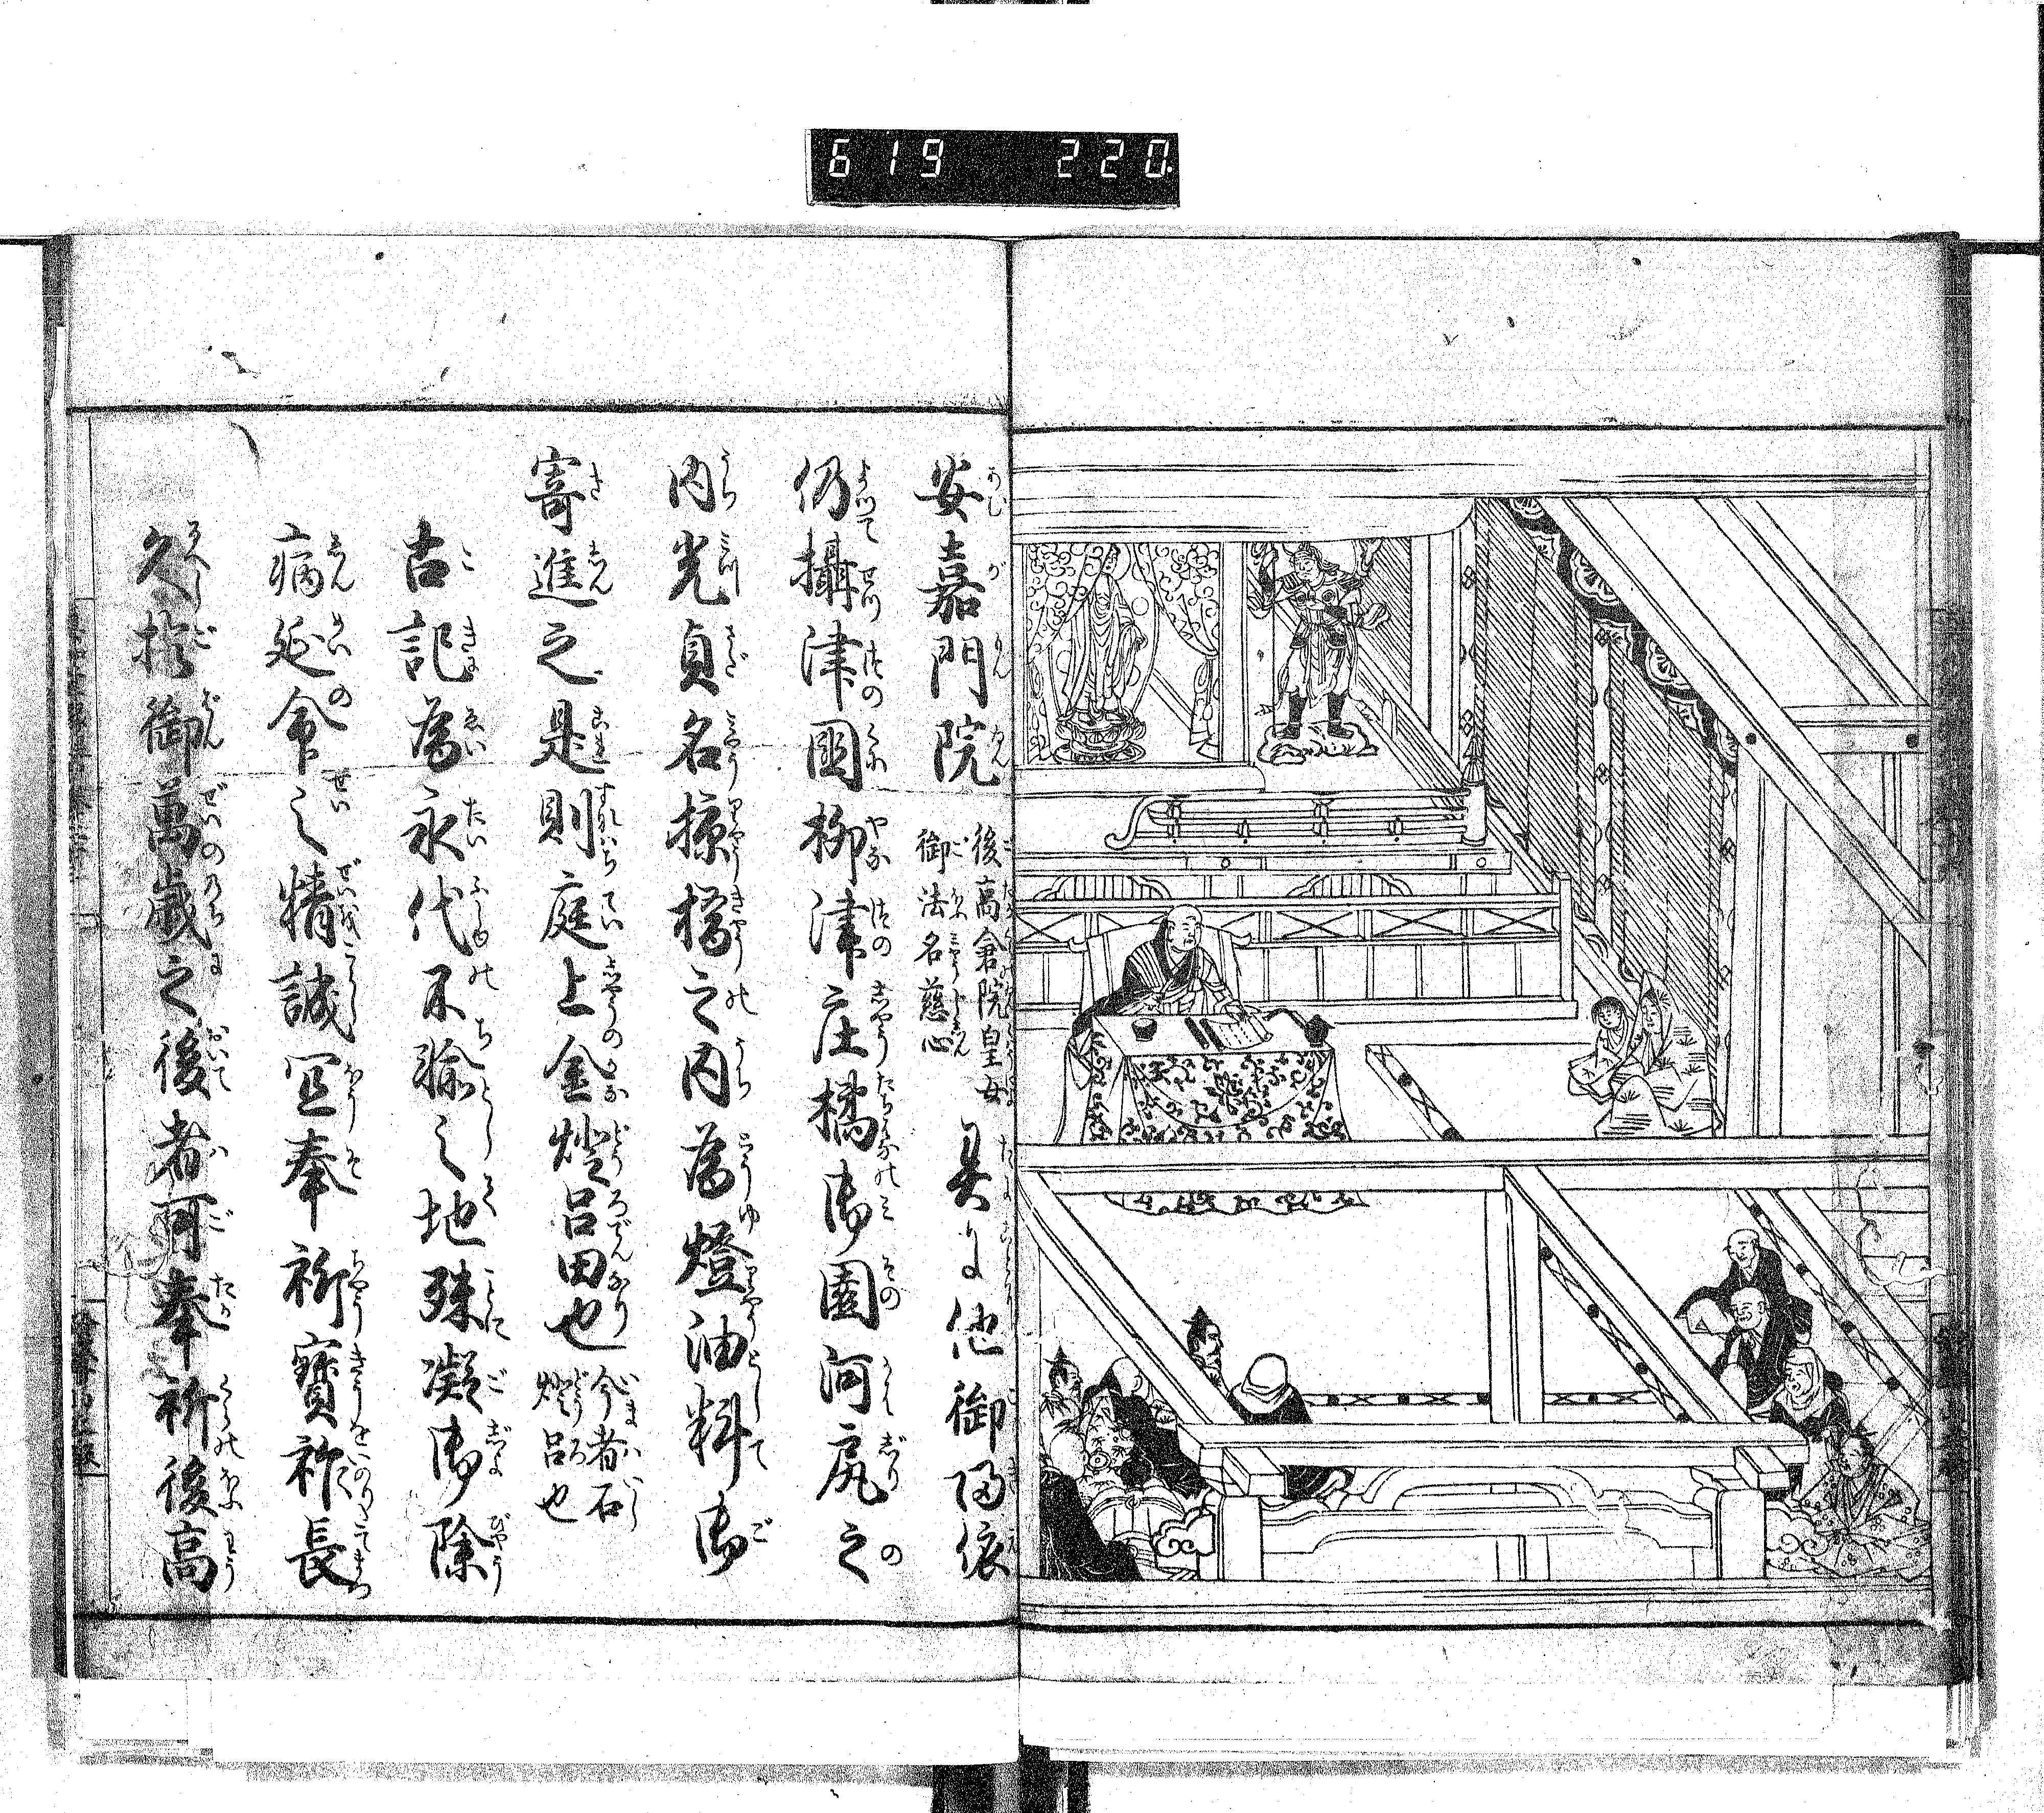 619 220
安嘉門院 後高倉院皇女 御法名慈心 異に他御歸依
仍攝津國柳津庄橘御園河尻之
内光貞名掠橋之内為燈油料御
寄進之是則庭上金燈呂田也 今者石 燈呂也
古記為永代不輸之地殊凝御除
病延命之精誠宜奉祈寶祚長
久於御萬歳之後者可奉祈後高